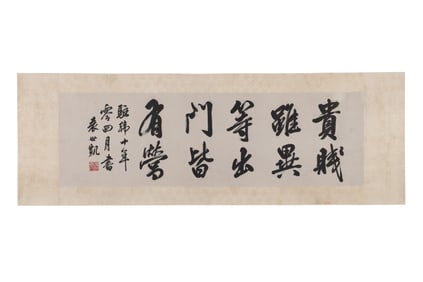 貴賤
雖異
等出
門皆
有營
十年
零四月書
袁世凱